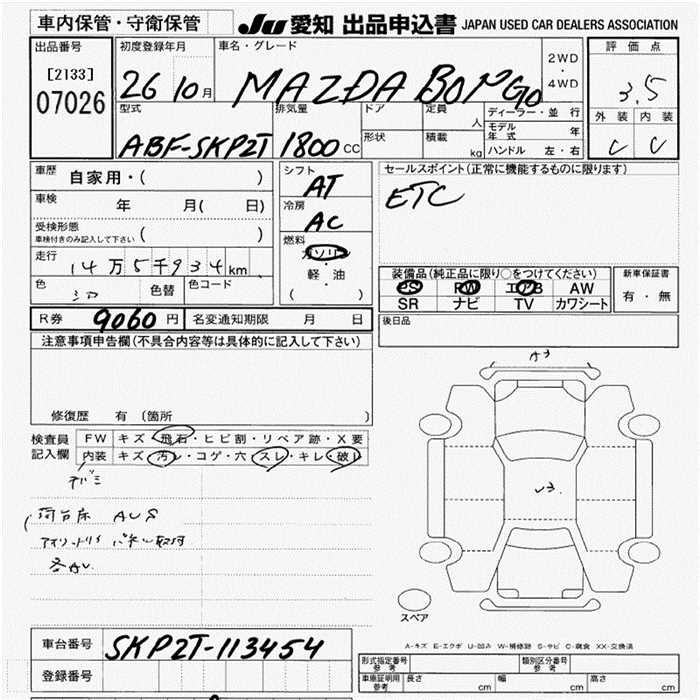 車内保管・守衛保管
JU 愛知 出品申込書 JAPAN USED CAR DEALERS ASSOCIATION
出品番号
[2133]
07026
初度登録年月
26 10月
車名・グレード
MAZDA BONGO
2WD
・
4WD
評価点
3.5
外装 内装
C C
型式
ABF-SKP2T
排気量
1800 CC
ドア
形状
定員
人
積載
kg
ディーラー・並行
モデル年式 年
ハンドル 左・右
車歴
自家用・( )
車検
年 月( 日)
受検形態
車検付きのみ記入して下さい ( )
走行
14万5千934km
色
シロ
色替
色コード
シフト
AT
冷房
AC
燃料
ガソリン
・
軽・油
( )
セールスポイント(正常に機能するものに限ります)
ETC
装備品(純正品に限り○をつけてください)
PS PW エアB AW
SR ナビ TV カワシート
新車保証書
有・無
後日品
R券 9060円 名変通知期限 月 日
注意事項申告欄(不具合内容等は具体的に記入して下さい)
修復歴 有 〔箇所 〕
検査員記入欄
FW キズ・飛石・ヒビ割・リペア跡・X要
内装 キズ・汚レ・コゲ・穴・スレ・キレ・破レ
荷台床 AUS
各AU
A3
U3.
スペア
A-キズ E-エクボ U-凹み W-補修跡 S-サビ C-腐食 XX-交換済
車台番号 SKP2T-113454
登録番号
形式指定番号 参考
類別区分番号 参考
車庫証明用 参考 長さ cm 幅 cm 高さ cm